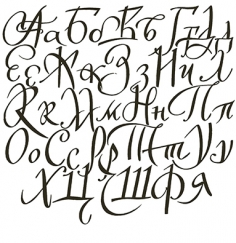 Аа Бб Вв Гг Дд
Ее Жж Зз Ии Л
Кк Мм Нн Пп
Оо Сс Р Тт Уу
Х Ц Ч Ш Ф Я